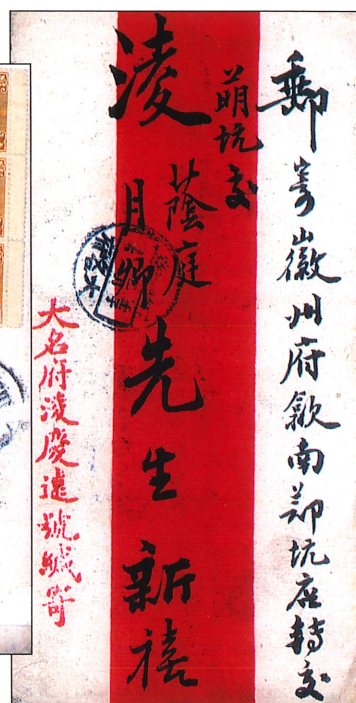 郵寄徽州府歙南鄚坑店轉交
萌坑交
淩蔭庭月卿先生新禧
大名府淩慶遠號緘寄